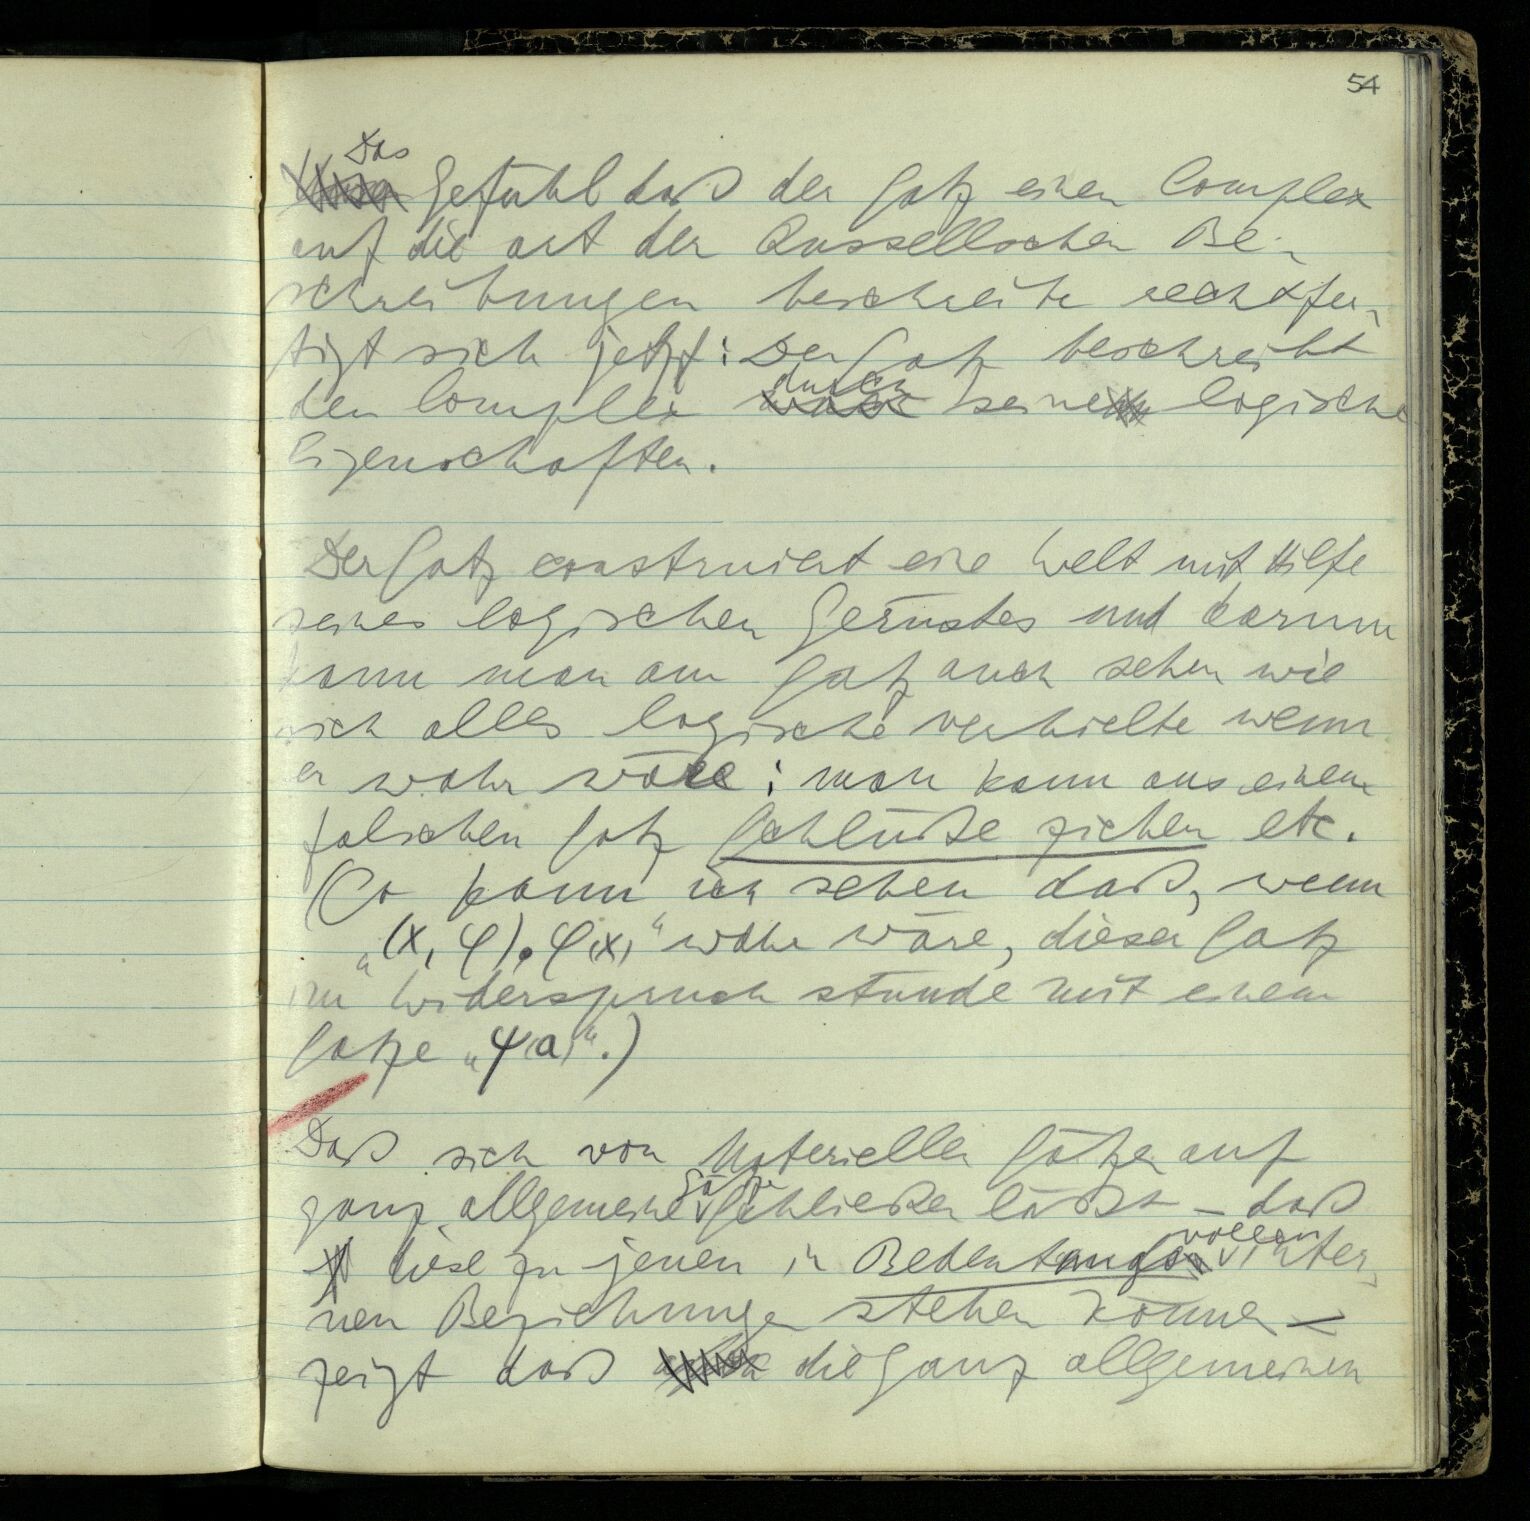 54
Das
Gefühl daß der Satz einen Complex
auf die Art der Russellschen Be-
schreibungen beschreibe rechtfer-
tigt sich jetzt: Der Satz beschreibt
den Complex durch seine logische
Eigenschaften.
Der Satz construiert eine Welt mit Hilfe
seines logischen Gerüstes und darum
kann man am Satz auch sehen wie
sich alles logische verhielte wenn
er wahr wäre: man kann aus einem
falschen Satz Schlüße ziehen etc.
(So kann ich sehen daß, wenn
„(x, φ).φ(x)“ wahr wäre, dieser Satz
im Widerspruch stünde mit einem
Satze „ψ(a)“.)
Daß sich von Materiellen Sätzen auf
ganz allgemeine Sätze schließen läßt – daß
diese zu jenen in Bedeutungsvollen inter-
nen Beziehungen stehen können –
zeigt daß die ganz allgemeinen